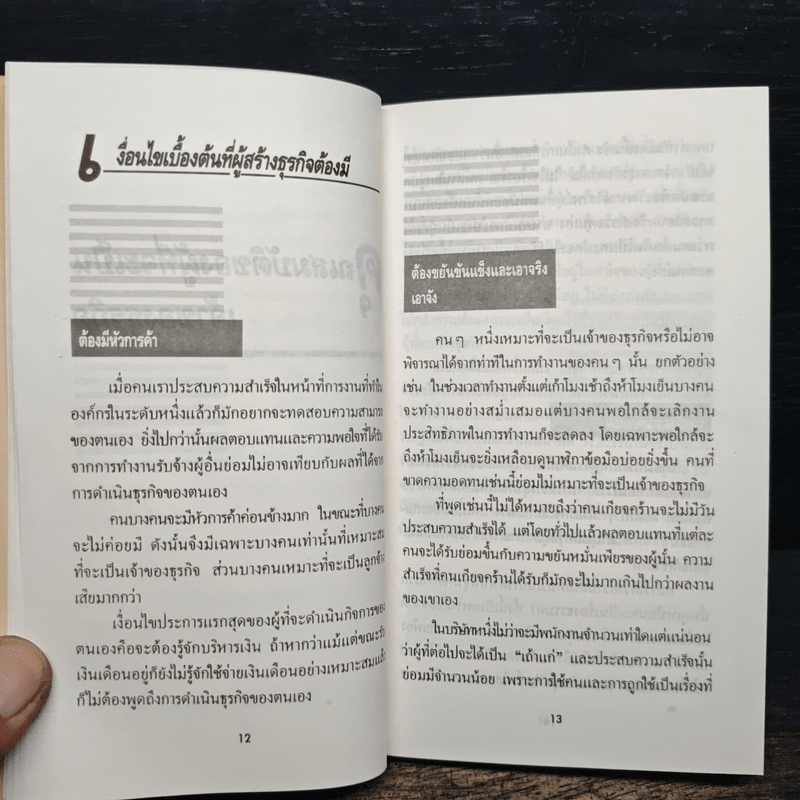 เงื่อนไขเบื้องต้นที่ผู้สร้างธุรกิจต้องมี
ต้องมีหัวการค้า
เมื่อคนเราประสบความสำเร็จในหน้าที่การงานที่ทำใน
องค์กรในระดับหนึ่งแล้วก็มักอยากจะทดสอบความสามาร
ของตนเอง ยิ่งไปกว่านั้นผลตอบแทนและความพอใจที่ได้รับ
จากการทำงานรับจ้างผู้อื่นย่อมไม่อาจเทียบกับผลที่ได้จาก
การดำเนินธุรกิจของตนเอง
คนบางคนจะมีหัวการค้าค่อนข้างมาก ในขณะที่บางคน
จะไม่ค่อยมี ดังนั้นจึงมีเฉพาะบางคนเท่านั้นที่เหมาะสม
ที่จะเป็นเจ้าของธุรกิจ ส่วนบางคนเหมาะที่จะเป็นลูกจ้าง
เสียมากกว่า
เงื่อนไขประการแรกสุดของผู้ที่จะดำเนินกิจการของ
ตนเองคือจะต้องรู้จักบริหารเงิน ถ้าหากว่าแม้แต่ขณะรับ
เงินเดือนอยู่ก็ยังไม่รู้จักใช้จ่ายเงินเดือนอย่างเหมาะสมแล้ว
ก็ไม่ต้องพูดถึงการดำเนินธุรกิจของตนเอง
12
ต้องขยันขันแข็งและเอาจริง
เอาจัง
คนๆ หนึ่งเหมาะที่จะเป็นเจ้าของธุรกิจหรือไม่อาจ
พิจารณาได้จากท่าทีในการทำงานของคนๆ นั้น ยกตัวอย่าง
เช่น ในช่วงเวลาทำงานตั้งแต่เก้าโมงเช้าถึงห้าโมงเย็นบางคน
จะทำงานอย่างสม่ำเสมอแต่บางคนพอใกล้จะเลิกงาน
ประสิทธิภาพในการทำงานก็จะลดลง โดยเฉพาะพอใกล้จะ
ถึงห้าโมงเย็นจะยิ่งเหลือบดูนาฬิกาข้อมือบ่อยยิ่งขึ้น คนที่
ขาดความอดทนเช่นนี้ย่อมไม่เหมาะที่จะเป็นเจ้าของธุรกิจ
ที่พูดเช่นนี้ไม่ได้หมายถึงว่าคนเกียจคร้านจะไม่มีวัน
ประสบความสำเร็จได้ แต่โดยทั่วไปแล้วผลตอบแทนที่แต่ละ
คนจะได้รับย่อมขึ้นกับความขยันหมั่นเพียรของผู้นั้น ความ
สำเร็จที่คนเกียจคร้านได้รับก็มักจะไม่มากเกินไปกว่าผลงาน
ของเขาเอง
ในบริษัทหนึ่งไม่ว่าจะมีพนักงานจำนวนเท่าใดแต่แน่นอน
ว่าผู้ที่ต่อไปจะได้เป็น “เถ้าแก่” และประสบความสำเร็จนั้น
ย่อมมีจำนวนน้อย เพราะการใช้คนและการถูกใช้เป็นเรื่องที่
13